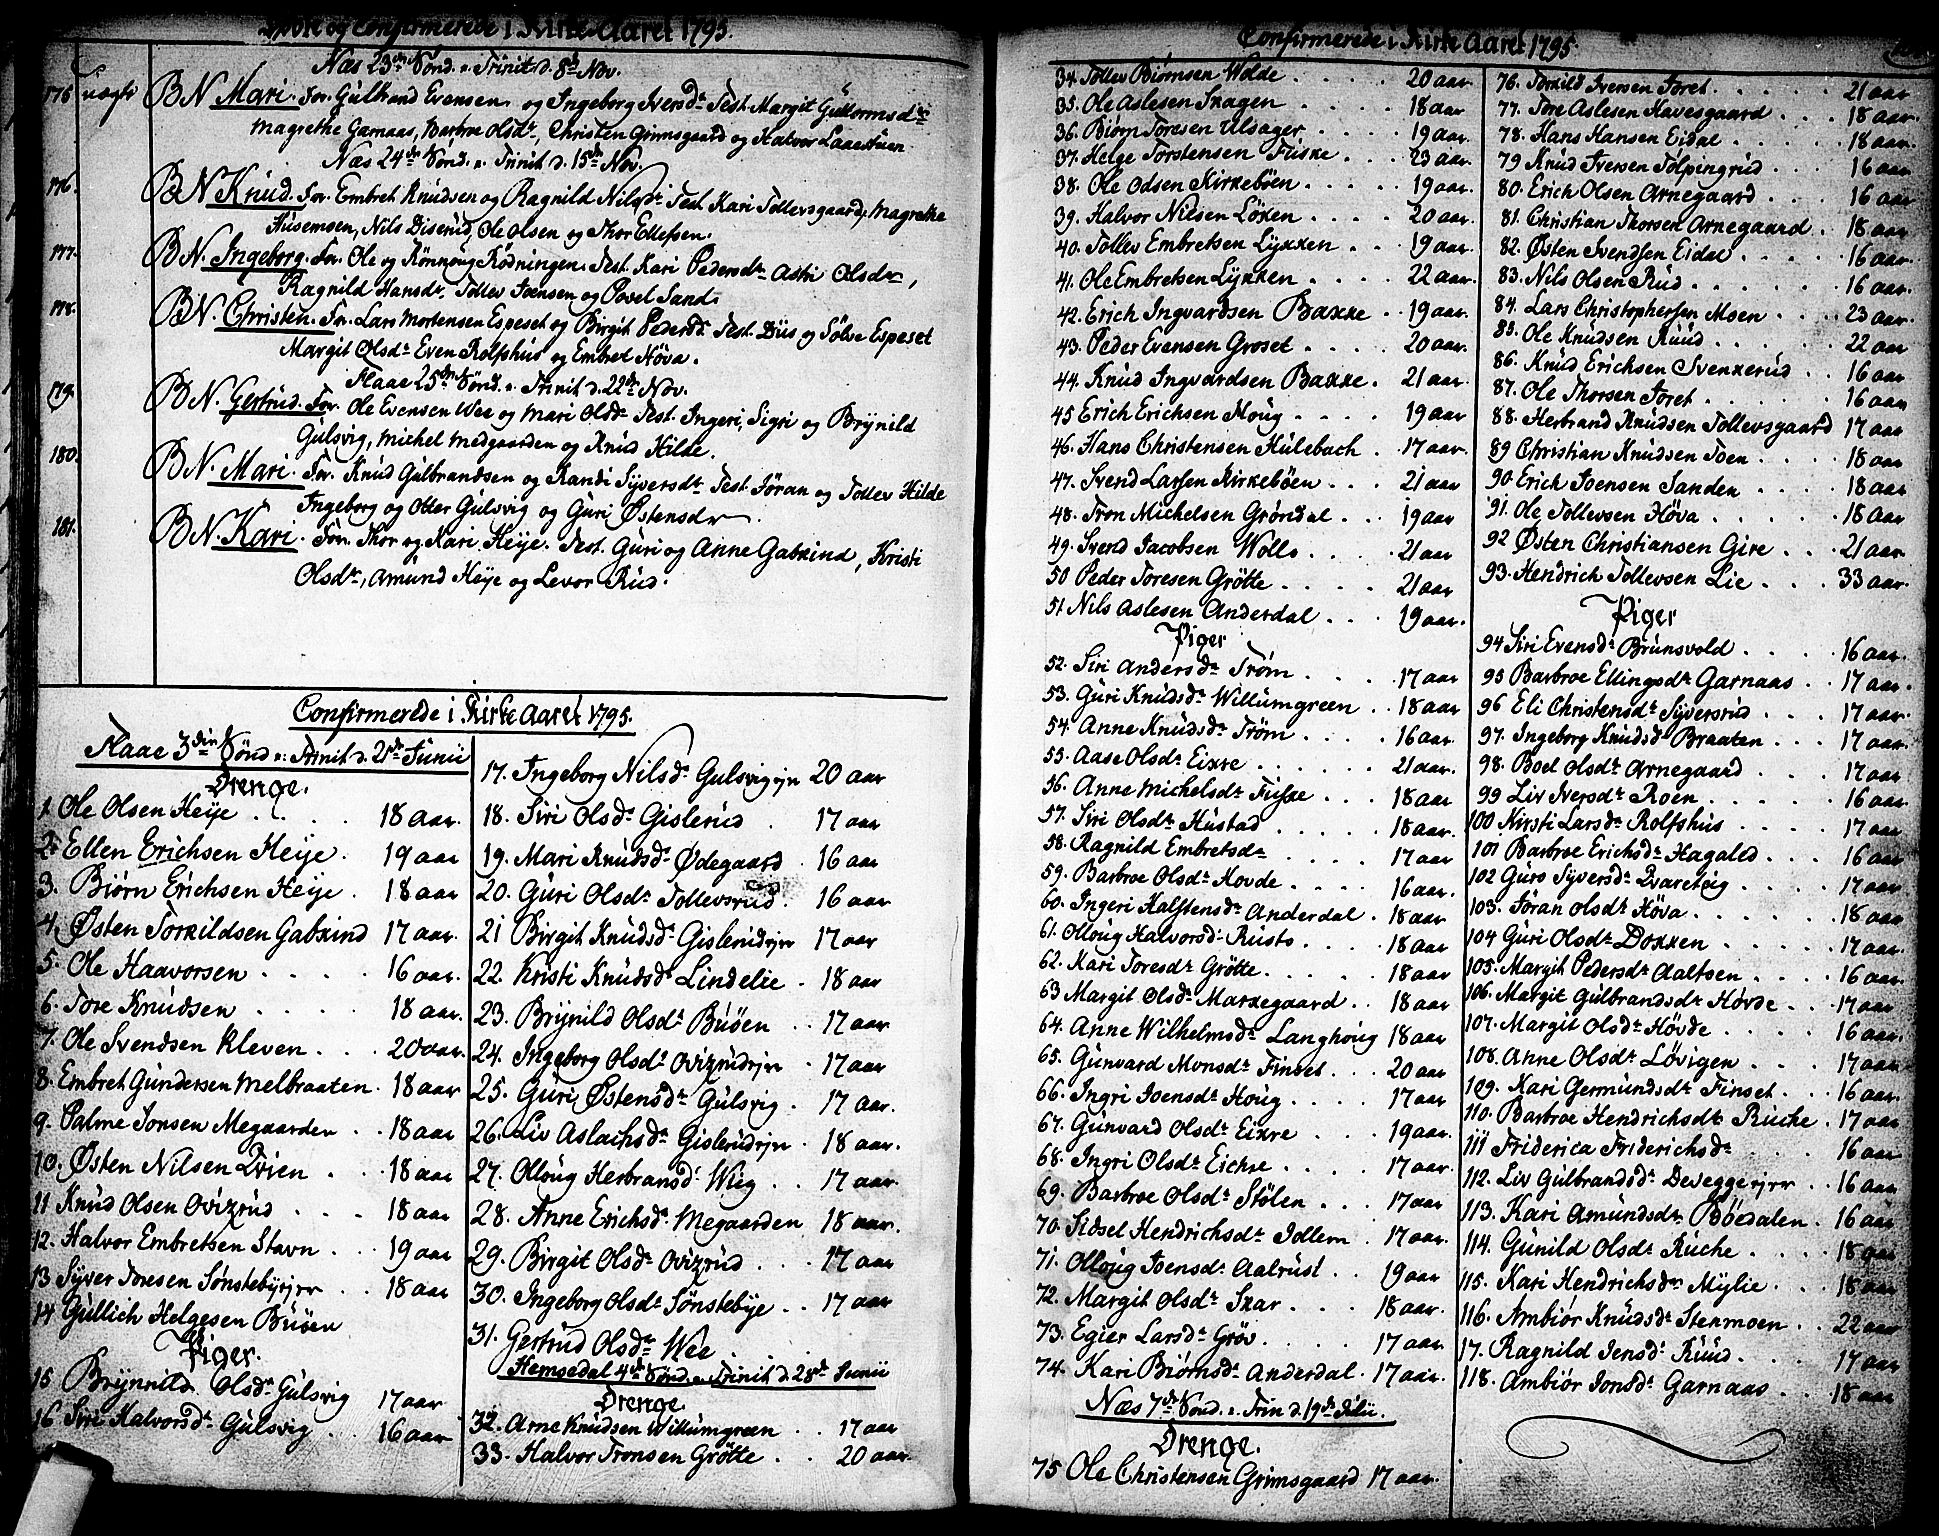 Døbte og Confirmerede i Kirke Aaret 1795.
Næs 23de Sønd. p. Trinit. d. 8de Nov.
175 uægte BN Mari. For. Gulbrand Evensen og Ingeborg Iversdr Test. Margit Guttormsdr
Magrethe Garnaas, Barbroe Olsdr, Christen Grimsgaard og Halvor
Næs 24de Sønd. p. Trinit d. 15de Nov.
176. BN Knud. For. Embret Knudsen og Ragnild Nilsdr Test Kari Tollevsgaard, Magrethe
Husemsen, Nils Diserud, Ole Olsen og Thor Ellefsen.
177. BN. Ingeborg. For. Ole og Rønnoug Rødningen. Test. Kari Pedersdr Astri Olsdr,
Ragnild Hansdr, Tollev Joensen og Povel Sand.
178. BN. Christen. For. Lars Mortensen Espeset og Birgit Pedersdr Test. Diis og Sølve Espeset
Margit Olsdr Even Rolfshus og Embret Høva.
Flaae 25de Sønd. p. Trinit d. 22de Nov.
179. BN. Gertrud. For. Ole Evensen Wee og Mari Olsdr Test. Ingeri, Sigri og Brynild
Gulsvig, Michel Medgaarden og Knud Hilde.
180. BN. Mari. For. Knud Gulbrandsen og Randi Syversdr Test. Jøran og Tollev Hilde
Ingeborg og Otter Gulsvig og Guri Østensdr
181. BN. Kari. For. Thor og Kari Heije. Test. Guri og Anne Gabkind, Kristi
Olsdr, Amund Heije og Levor Rud.
Confirmerede i Kirke Aaret 1795.
Flaae 3die Sønd p. Trinit d. 21de Junii
Drenge.
1. Ole Olsen Heije . . . . 18 aar.
2. Ellen Erichsen Heije. 19 aar
3. Biørn Erichsen Heije . 18 aar.
4. Østen Torkildsen Gabkind 17 aar.
5. Ole Haavorsen . . . . 16 aar.
6. Tore Knudsen . . . . . 18 aar.
7. Ole Svendsen Kleven . . . 20 aar.
8. Embret Gundersen Melbraaten. 18 aar
9. Palme Jonsen Megaarden . . 18 aar
10. Østen Nilsen Qvien . . 18 aar
11 Knud Olsen Ovizrud . . . 18 aar
12. Halvor Embretsen Stavn . . 19 aar
13 Syver Toresen Sønstebyejer . . 18 aar
14 Gullich Helgesen Buøen
Piger.
15 Brynnild Olsdr Gulsvig 17 aar
16 Siri Halvorsdr Gulsvig . 16 aar
17. Ingeborg Nilsdr Gulsvigejr 20 aar
18. Siri Olsdr Gislerud . 17 aar
19. Mari Knudsdr Ødegaard . 16 aar
20. Guri Olsdr Tollevsrud. 16 aar
21 Birgit Knudsdr Gislerudejr 17 aar
22. Kristi Knudsdr Lindelie . 18 aar
23. Brynild Olsdr Buøen . . 17 aar
24. Ingeborg Olsdr Ovizrudejr . 17 aar
25. Guri Østensdr Gulsvig . 17 aar.
26. Liv Aslachsdr Gislerudejr . 18 aar.
27. Olloug Herbransdr Wiig . 17 aar.
28. Anne Erichsdr Megaarden 18 aar.
29. Birgit Olsdr Ovizrud . . . 17 aar
30. Ingeborg Olsdr Sønstebye . . 17 aar
31. Gertrud Olsdr Wee
Hemsedal 4de Sønd. p. Trinit d. 28de Junii
Drenge
32. Arne Knudsen Willumgreen . . 17 aar
33. Halvor Tronsen Grøtte . . 20 aar.
Confirmerede i Kirke Aaret 1795.
34. Tollev Biørnsen Wolde . . . . 20 aar
35. Ole Aslesen Skagen . . . . 18 aar
36. Biørn Toresen Ulsager . . . 19 aar
37. Helge Torstensen Fiske . . . 23 aar
38. Ole Odsen Kirkebøen . . . . 19 aar.
39. Halvor Nilsen Løken . . . . 20 aar.
40. Tollev Embretsen Lykken . . . 19 aar
41. Ole Embretsen Lykken . . . . 22 aar
42. Erich Ingvardsen Bakke . 19 aar.
43. Peder Evensen Groset . . . . 20 aar.
44. Knud Ingvardsen Bakke . 21 aar.
45 Erich Erichsen Houg . . . . 19 aar
46. Hans Christensen Hulebach . 17 aar.
47. Svend Larsen Kirkebøen . . 21 aar
48. Tron Michelsen Grøndal . . 19 aar
49. Svend Jacobsen Wollo . . . 21 aar
50 Peder Toresen Grøtte . . . . 21 aar
51 Nils Aslesen Anderdal . . . 19 aar.
Piger
52. Siri Andersdr Trøm . . . . 17 aar
53. Guri Knudsdr Willumgreen . . 18 aar
54. Anne Knudsdr Trøm . . . . 16 aar.
55. Aase Olsdr Eikre . . . . . . 21 aar.
56. Anne Michelsdr Fiske . . . . 18 aar
57. Siri Olsdr Hustad . . . . . 18 aar.
58. Ragnild Embretsdr . . . . 17 aar
59. Barbroe Olsdr Hovde . . . . . 16 aar.
60. Ingeri Halstensdr Anderdal . 18 aar
61. Olloug Halvorsdr Rusto . . . . 18 aar
62. Kari Toresdr Grøtte . . . . . 18 aar
63 Margit Olsdr Markegaard . . 18 aar
64. Anne Wilhelmsdr Langhoug 18 aar
65. Gunvard Monsdr Finset . . 20 aar
66. Ingri Joensdr Houg . . . . 17 aar
67. Gunvard Olsdr Eikre . . . . 19 aar.
68. Ingri Olsdr Eichre . . . . 17 aar.
69. Barbroe Olsdr Stølen . . . 17 aar
70. Sidsel Hendrichsdr Idlem . . 17 aar.
71. Olloug Joensdr Aalrust . . 19 aar
72. Margit Olsdr Skar . . . . 18 aar.
73. Egier Larsdr Grøv . . . . . 17 aar.
74. Kari Biørnsdr Anderdal . 17 aar.
Næs 7de Sønd. p. Trin d. 19de Julii.
Drenge.
75 Ole Christensen Grimsgaard 17 aar.
76. Torkild Iversen Foret . . . . . 21 aar
77. Tore Aslesen Havesgaard . . . 18 aar.
78. Hans Hansen Eidal . . . . . 18 aar.
79 Knud Iversen Tolpingrud . . . 16 aar
80. Erich Olsen Arnegaard . . . . 16 aar
81. Christian Thorsen Arnegaard . 18 aar
82. Østen Svendsen Eidal . . . . . 16 aar.
83. Nils Olsen Rud . . . . . . 16 aar.
84. Lars Christophersen Moen . . . 23 aar
85. Ole Knudsen Ruud . . . . . 22 aar
86. Knud Erichsen Svenkerud . . 16 aar
87. Ole Thorsen Foret . . . . . . 16 aar
88. Herbrand Knudsen Tollevsgaard 17 aar
89 Christian Knudsen Toen . . . . 18 aar
90. Erich Joensen Sanden . . . . 18 aar
91. Ole Tollevsen Høva . . . . . 18 aar
92 Østen Christiansen Gire . . . 21 aar
93. Hendrich Tollevsen Lie . . . 33 aar.
Piger
94 Siri Evensdr Brunsvold . . . . 16 aar.
95 Barbroe Ellingsdr Garnaas . . 17 aar.
96 Eli Christensdr Syversrud . . . 17 aar.
97. Ingeborg Knudsdr Braaten . . 17 aar.
98. Boel Olsdr Arnegaard . . . . 17 aar
99 Liv Iversdr Roen . . . . . . 16 aar.
100 Kirsti Larsdr Rolfshus . . . . 17 aar
101 Barbroe Erichsdr Hagaled . . . 16 aar
102 Guro Syversdr Qvaretvig . . . 17 aar
103. Jøran Olsdr Høva . . . . . . 18 aar
104 Guri Olsdr Dokken . . . . . 17 aar.
105. Margit Pedersdr Aaltsen . . . . 16 aar.
106. Margit Gulbrandsdr Hovde . . . 17 aar
107. Margit Olsdr Hovde . . . . . 16 aar.
108. Anne Olsdr Løvigen . . . . 17 aar
109. Kari Germundsdr Finset . . . 16 aar.
110. Barbroe Hendrichsdr Ruche . 17 aar
111 Friderica Friderichsdr . . . . 16 aar
112. Liv Gulbrandsdr Deveggeejer . . 16 aar
113. Kari Amundsdr Bøedalen . 16 aar
114. Gunild Olsdr Ruche . . . . 18 aar
115. Kari Hendrichsdr Mylie . . . . 18 aar
116. Ambiør Knudsdr Stenmoen . . . 22 aar
17. Ragnild Jensdr Ruud . . . . . 17 aar
118. Ambiør Jonsdr Garnaas . . . 18 aar